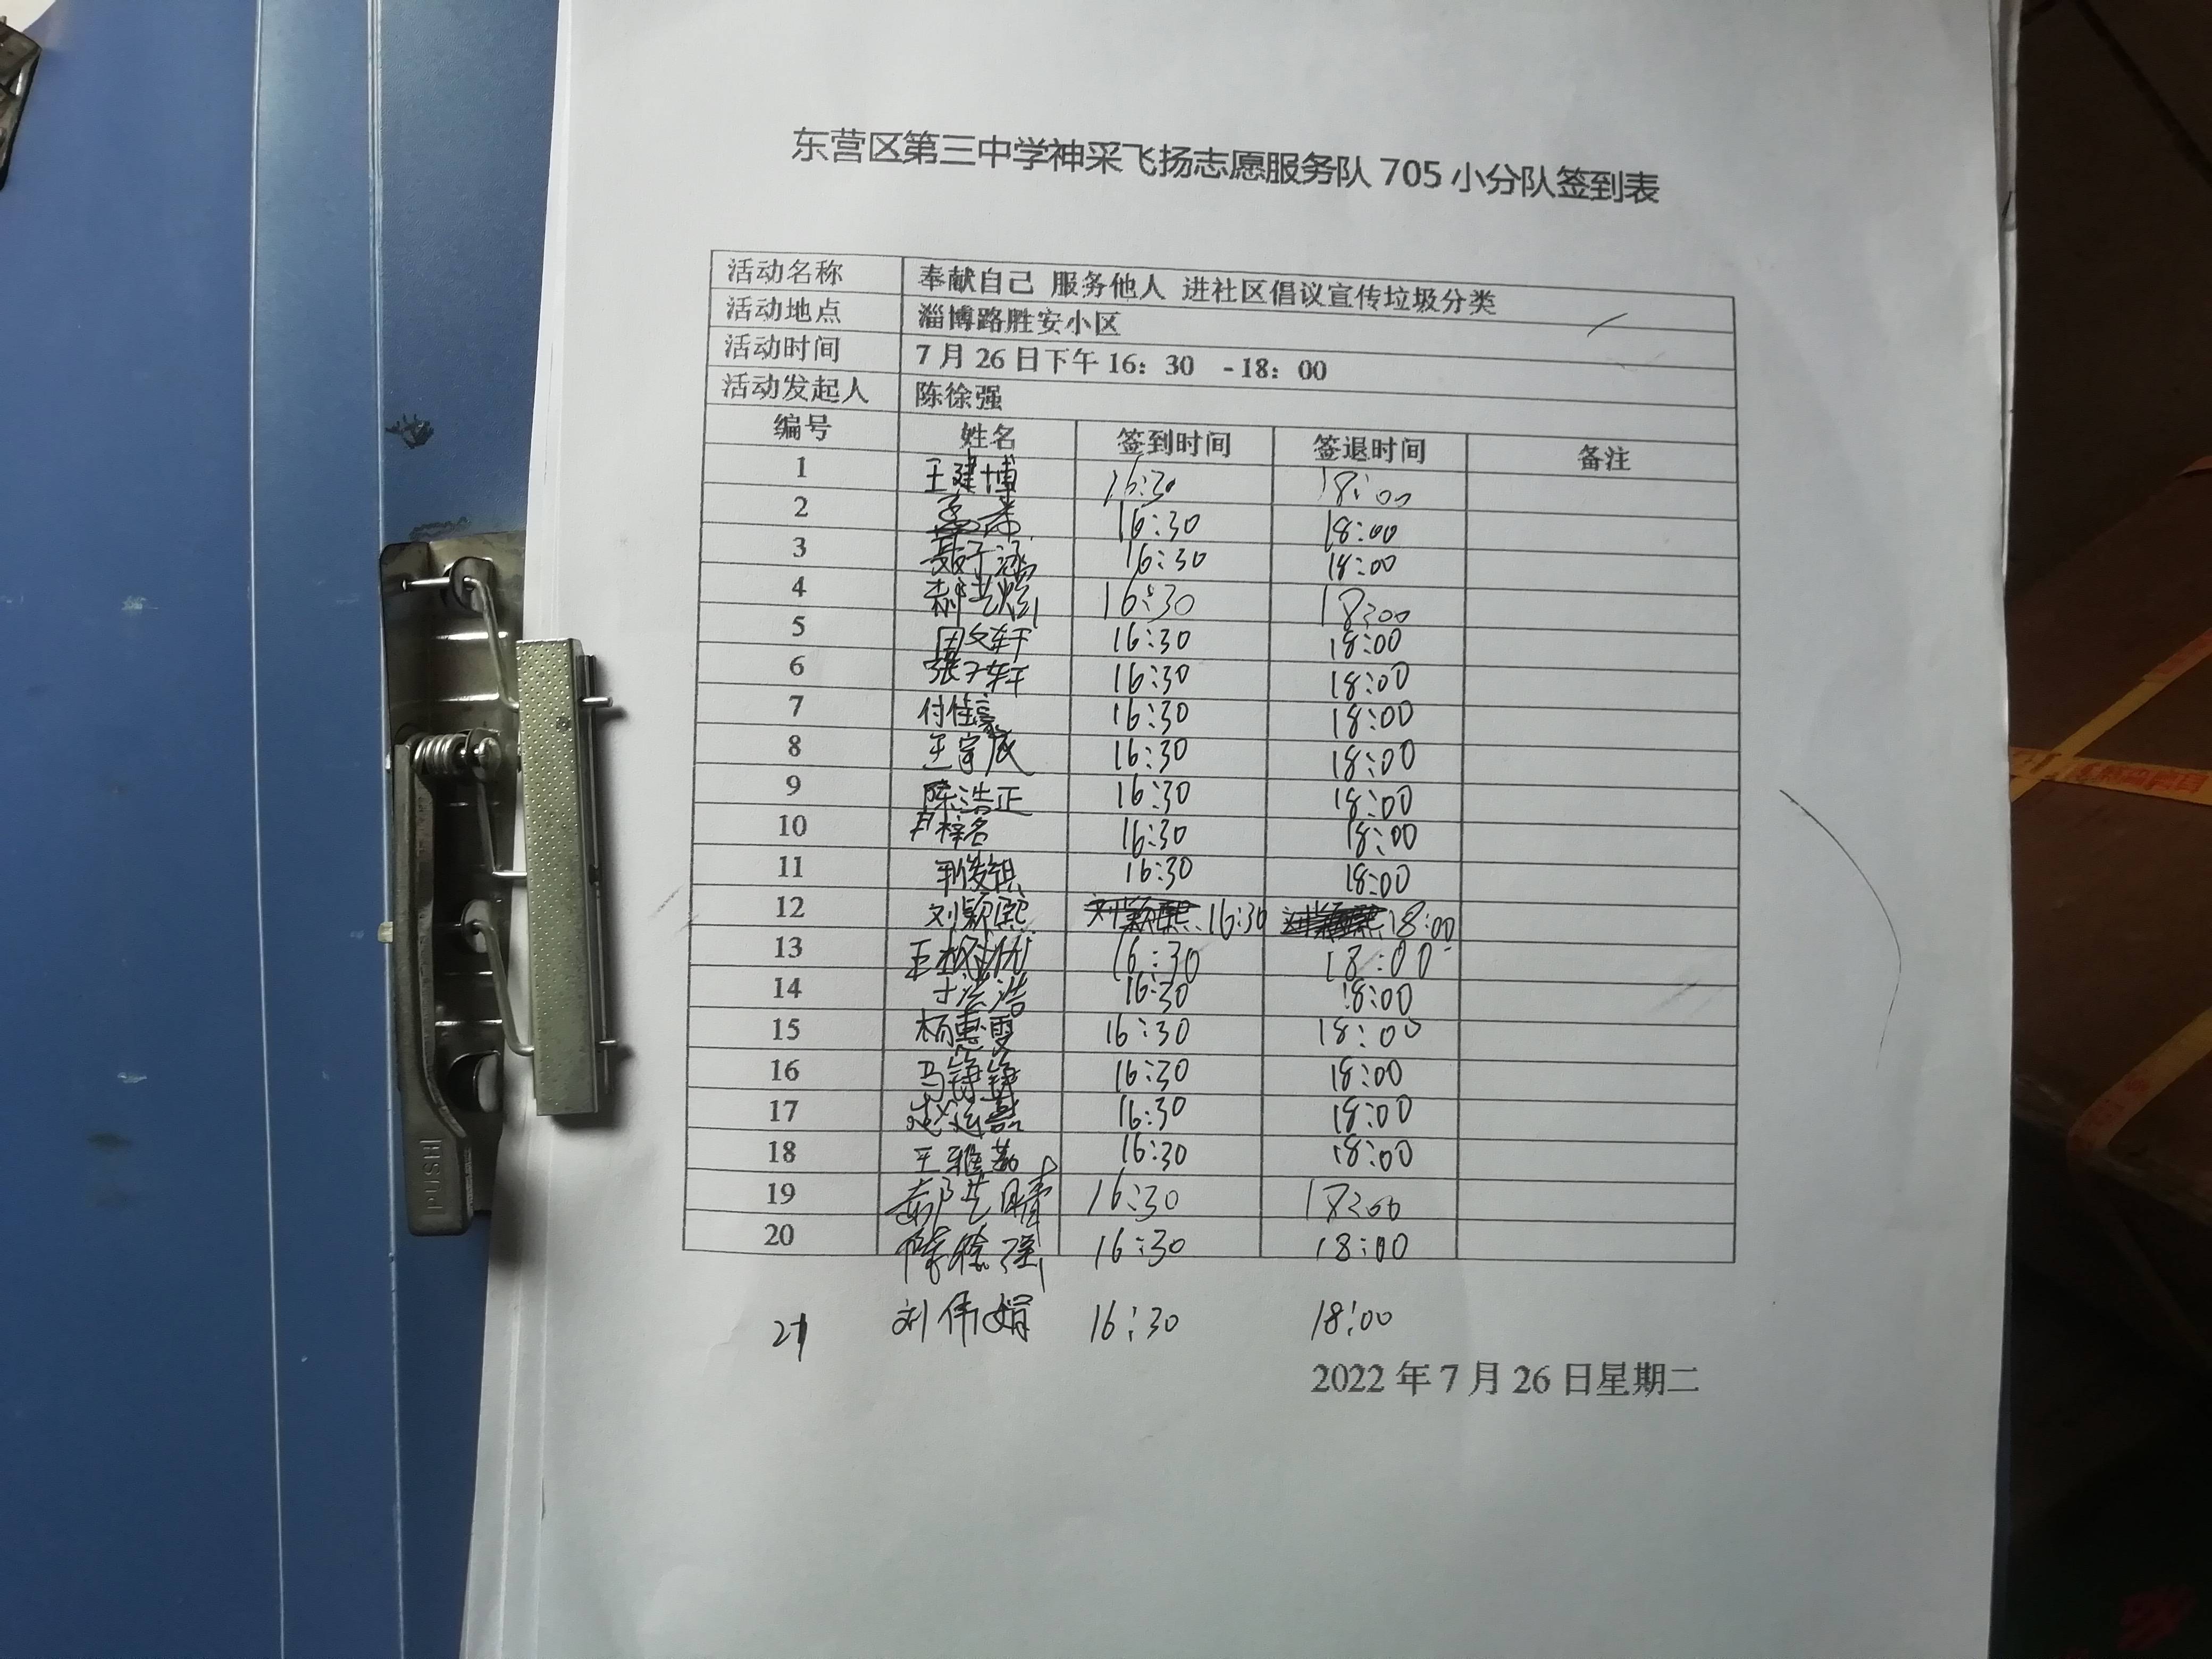 东营区第三中学神采飞扬志愿服务队 705 小分队签到表
活动名称 奉献自己 服务他人 进社区倡议宣传垃圾分类
活动地点 淄博路胜安小区
活动时间 7 月 26 日下午 16：30 -18：00
活动发起人 陈徐强
编号 姓名 签到时间 签退时间 备注
1 王建博 16:30 18:00
2 16:30 18:00
3 聂子涵 16:30 18:00
4 郝艺炫 16:30 18:00
5 周文轩 16:30 18:00
6 张子轩 16:30 18:00
7 付佳豪 16:30 18:00
8 王宇辰 16:30 18:00
9 陈浩正 16:30 18:00
10 卢梓名 16:30 18:00
11 16:30 18:00
12 刘颖熙 16:30 18:00
13 16:30 18:00
14 16:30 18:00
15 杨惠雯 16:30 18:00
16 马铮铮 16:30 18:00
17 16:30 18:00
18 王雅茹 16:30 18:00
19 郝艺晴 16:30 18:00
20 陈徐强 16:30 18:00
21 刘伟娟 16:30 18:00
2022 年 7 月 26 日星期二
PUSH